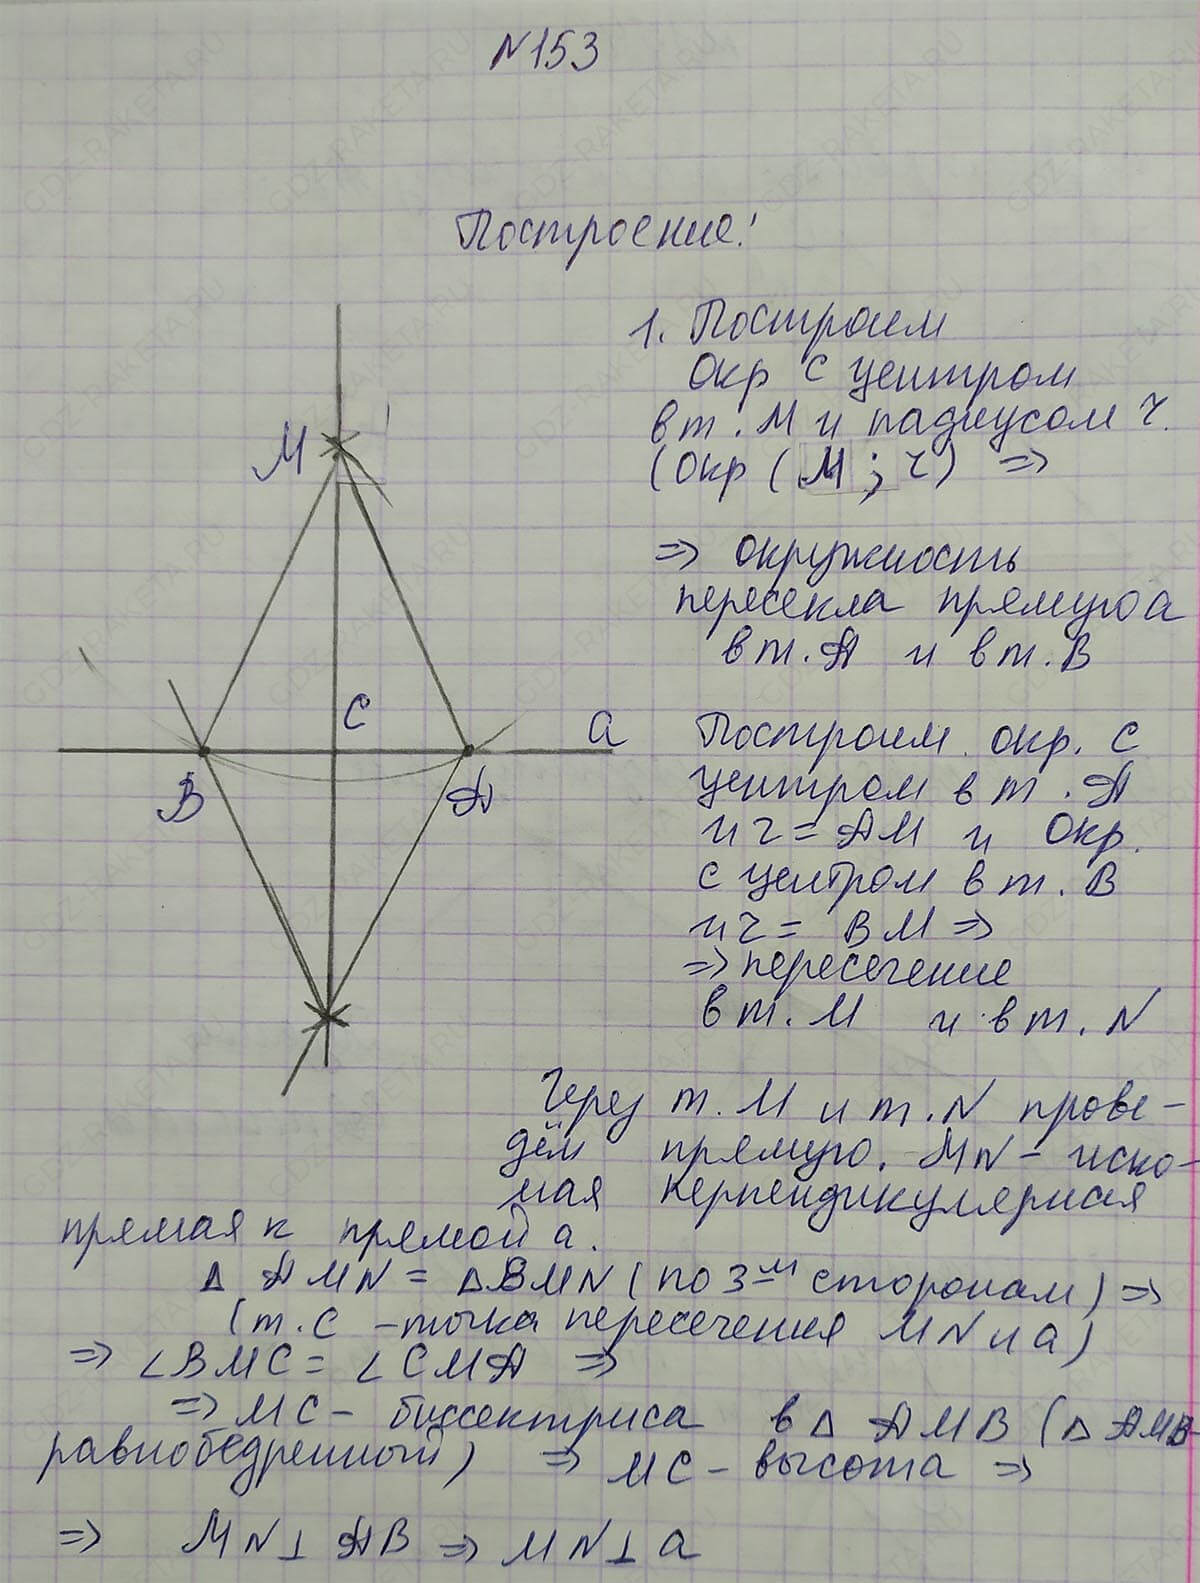 N153
Построение:
1. Построим
окр с центром
в т. М и радиусом r.
(Окр (М; r) ⇒
⇒ окружность
пересекла прямую а
в т. А и в т. В
Построим окр. с
центром в т. А
и r = АМ и окр.
с центром в т. В
и r = ВМ ⇒
⇒ пересечение
в т. М и в т. N
Через т. М и т. N прове-
дём прямую. MN - иско-
мая перпендикулярная
прямая к прямой а.
Δ АMN = ΔBMN (по 3-м сторонам) ⇒
(т. С - точка пересечения MN и а)
⇒ ∠BMC = ∠CMA ⇒
⇒ MC - биссектриса в Δ AMB (Δ AMB-
равнобедренный) ⇒ MC - высота ⇒
⇒ MN ⊥ AB ⇒ MN ⊥ a
М
С
а
В
А
GDZ-RAKETA.RU